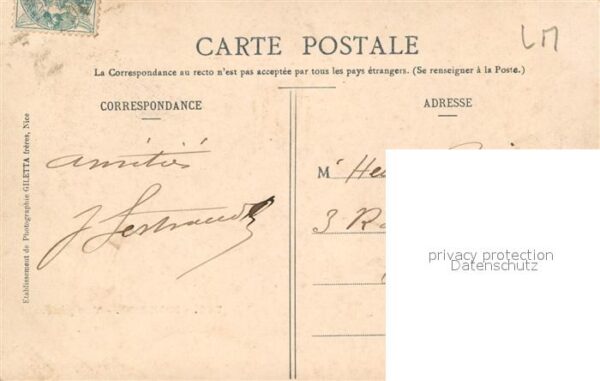 CARTE POSTALE
La Correspondance au recto n'est pas acceptée par tous les pays étrangers. (Se renseigner à la Poste.)
CORRESPONDANCE
ADRESSE
Etablissement de Photographie GILETTA frères, Nice
amitiés
J
M^r
3
privacy protection
Datenschutz
LM